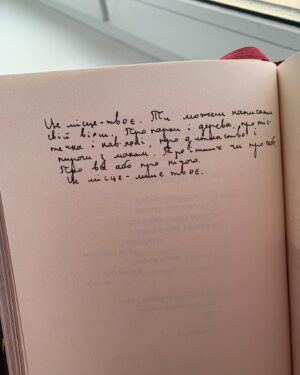 Це місце – твоє. Ти можеш написати
свій вірш. Про парки і дерева, про міс
течка і навпаки, про дитинство і
пироги з маком. Про інших чи про себе.
Про все або про нічого.
Це місце – лише твоє.